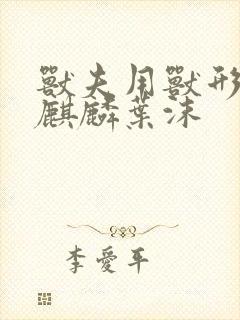 獸夫用獸形
麒麟葉沫
李愛平